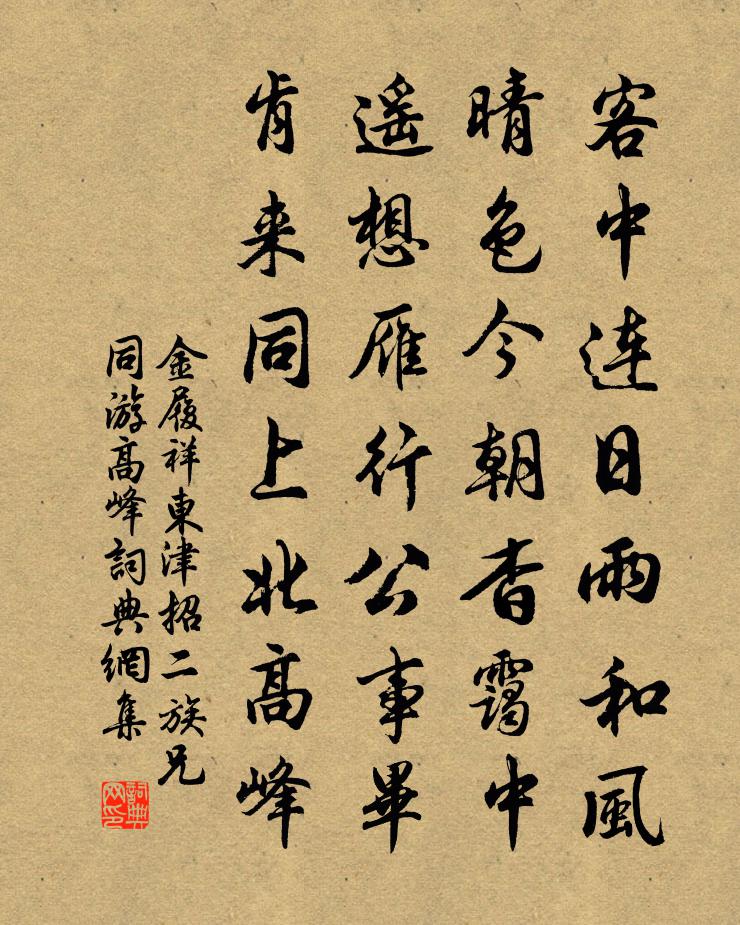 客中连日雨和風
晴色今朝杳靄中
遥想雁行公事畢
肯来同上北高峰
金履祥東津招二族兄
同游高峰詞典網集
詞典网印